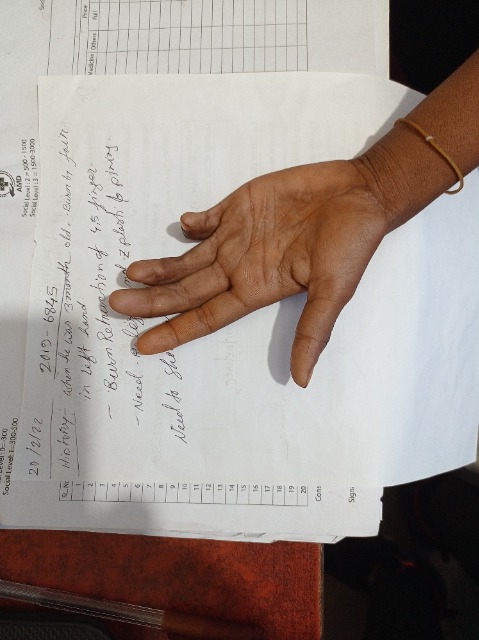 Price
Full
Medicine
Others
AMD
Social Level : 2 = 500 - 1500
Social Level : 3 = 1500-3000
Social Level: 1=300-500
20/2/22 2019 - 6845
History - when he was 3 month old. Burn by
in left hand
- Burn Retraction of 4,5 finger.
- Need plasty & pining
Need to
S. No
1
2
3
4
5
6
7
8
9
10
11
12
13
14
15
16
17
18
19
20
Cons
Sign